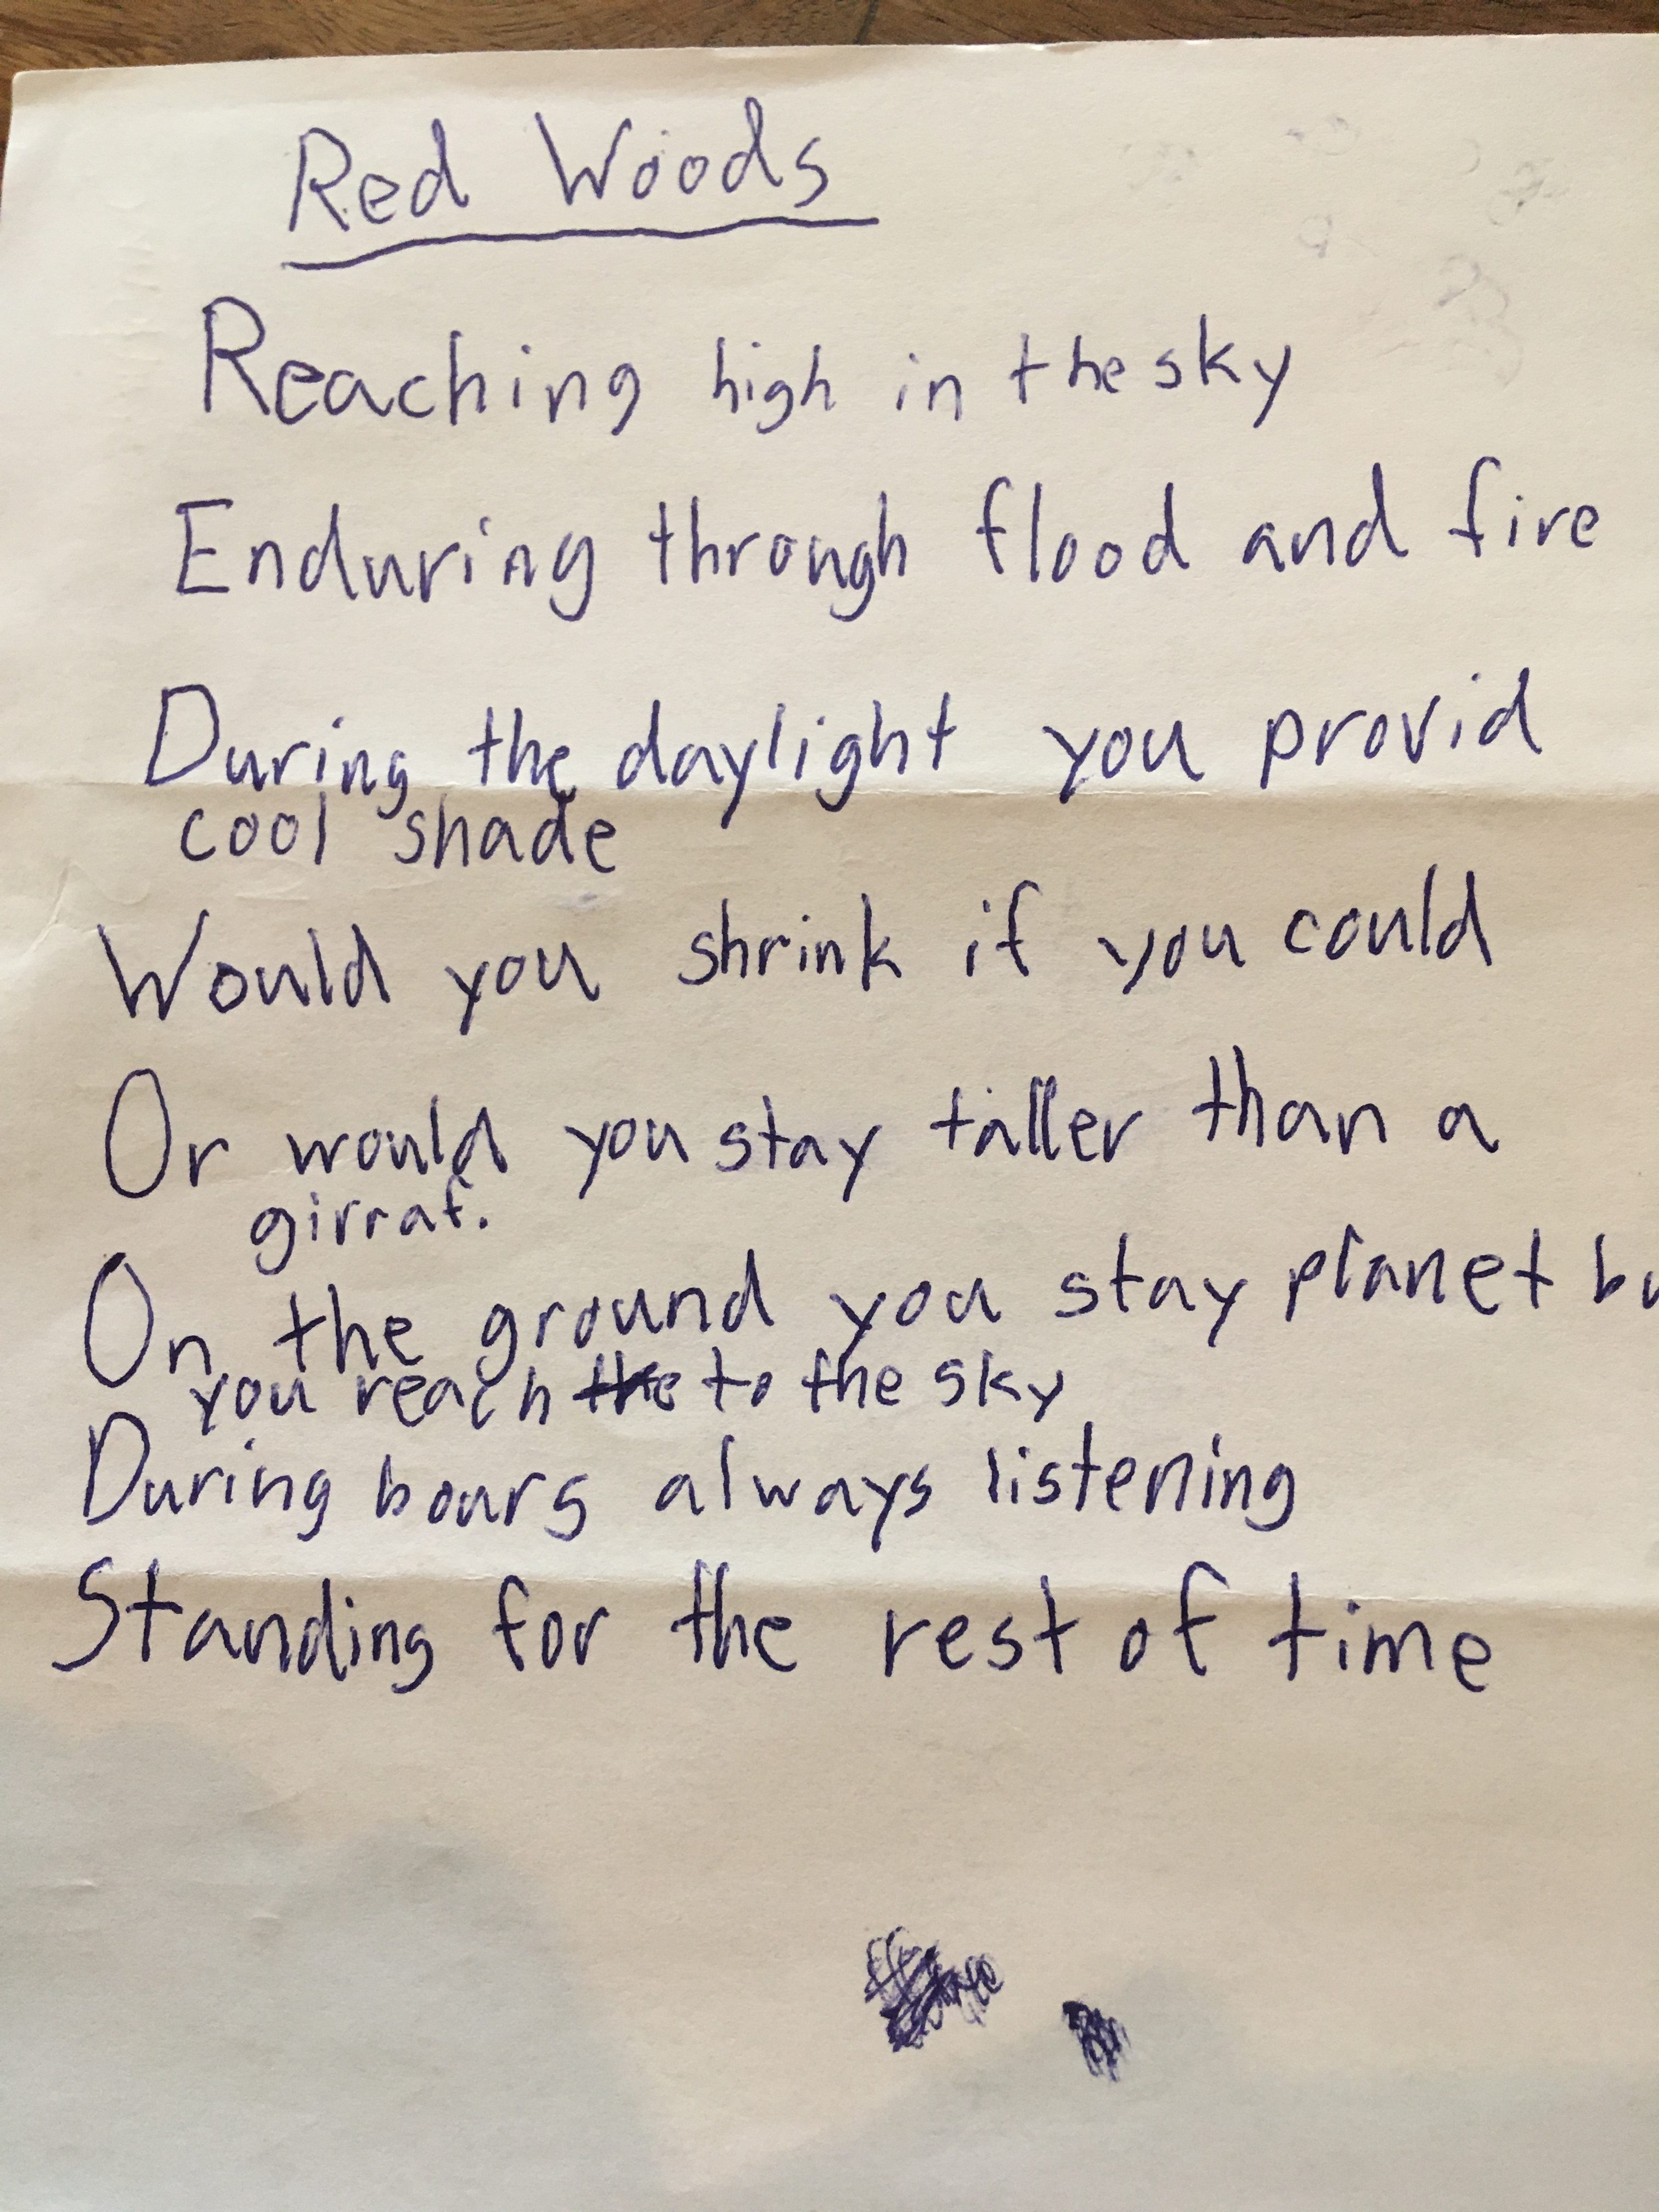 Red Woods
Reaching high in the sky
Enduring through flood and fire
During the daylight you provid
cool shade
Would you shrink if you could
Or would you stay taller than a
girraf.
On the ground you stay planet
you reach the to the sky
During hours always listening
Standing for the rest of time